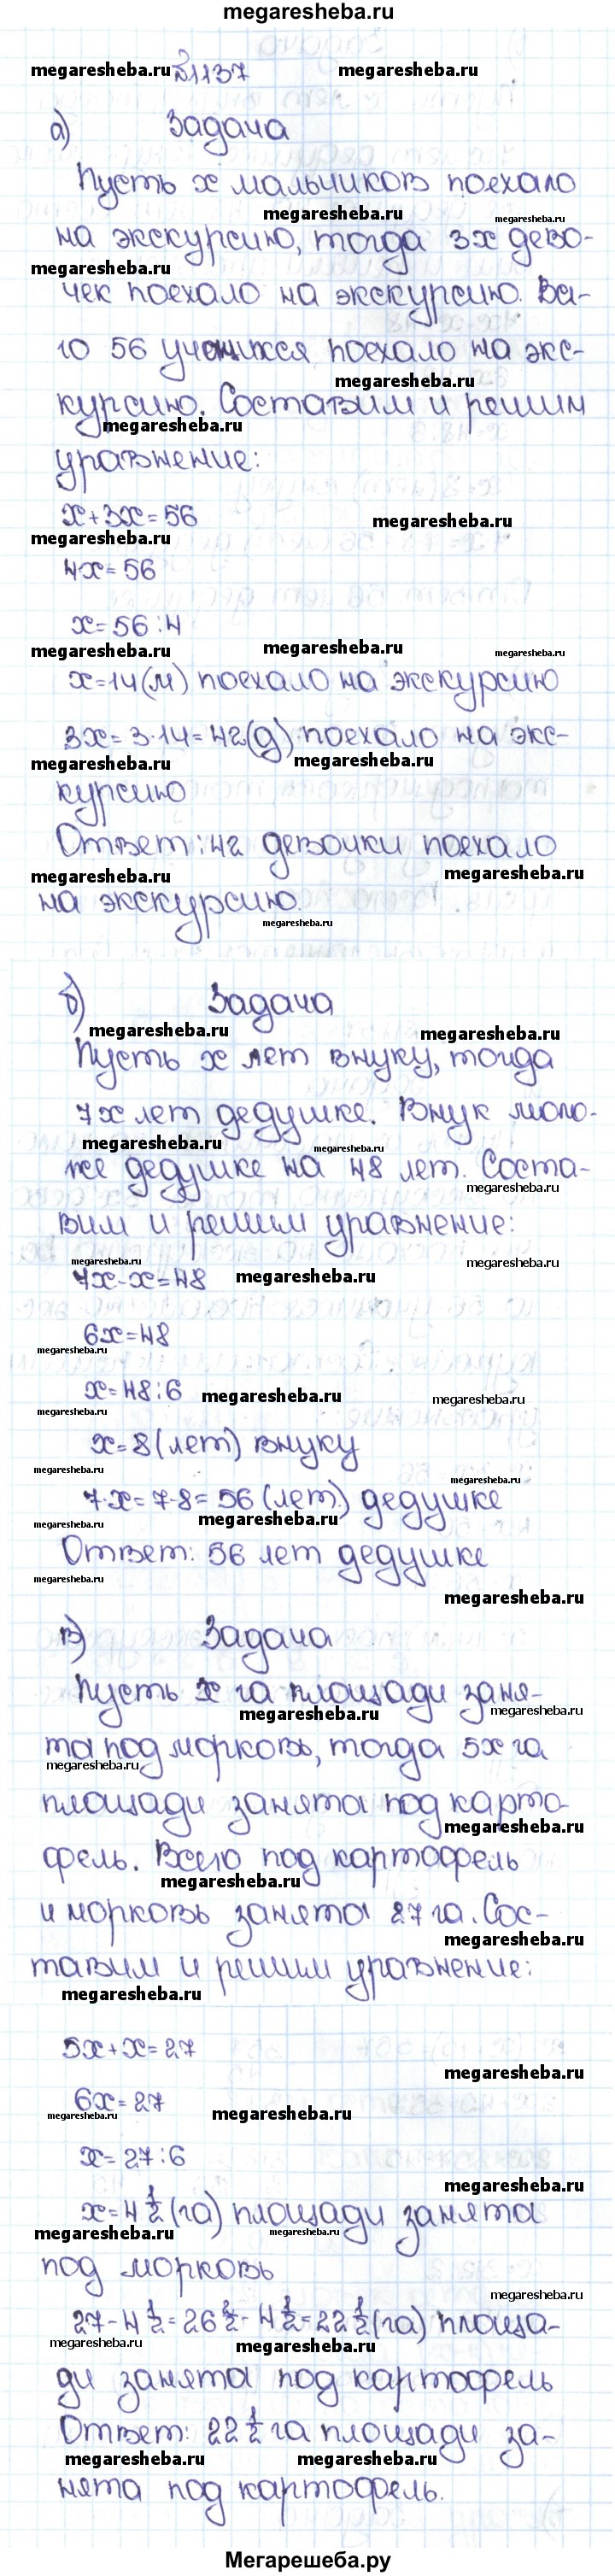 megaresheba.ru
megaresheba.ru №1137 megaresheba.ru
а) Задача
Пусть x мальчиков поехало
megaresheba.ru megaresheba.ru
на экскурсию, тогда 3x дево-
megaresheba.ru
чек поехало на экскурсию. Все-
го 56 учащихся поехало на экс-
megaresheba.ru
курсию. Составим и решим
megaresheba.ru
уравнение:
x+3x=56
megaresheba.ru megaresheba.ru
4x=56
x=56:4
megaresheba.ru megaresheba.ru megaresheba.ru
x=14(м) поехало на экскурсию
3x=3·14=42(д) поехало на экс-
megaresheba.ru megaresheba.ru
курсию
Ответ: 42 девочки поехало
megaresheba.ru megaresheba.ru
на экскурсию.
megaresheba.ru
б) Задача
megaresheba.ru megaresheba.ru
Пусть x лет внуку, тогда
7x лет дедушке. Внук моло-
megaresheba.ru megaresheba.ru
же дедушке на 48 лет. Соста-
megaresheba.ru
вим и решим уравнение:
megaresheba.ru megaresheba.ru
7x-x=48 megaresheba.ru
6x=48
megaresheba.ru
x=48:6 megaresheba.ru megaresheba.ru
megaresheba.ru
x=8(лет) внуку
megaresheba.ru megaresheba.ru
7·x=7·8=56(лет) дедушке
megaresheba.ru megaresheba.ru
Ответ: 56 лет дедушке
megaresheba.ru megaresheba.ru
в) Задача
Пусть x га площади заня-
megaresheba.ru megaresheba.ru
та под морковь, тогда 5x га
megaresheba.ru
площади занята под карто-
megaresheba.ru
фель. Всего под картофель
megaresheba.ru
и морковь занята 27 га. Сос-
megaresheba.ru
тавим и решим уравнение:
megaresheba.ru
5x+x=27
megaresheba.ru
6x=27
megaresheba.ru megaresheba.ru
x=27:6
megaresheba.ru
x=4 1/2 (га) площади занята
megaresheba.ru megaresheba.ru
под морковь
megaresheba.ru
27-4 1/2=26 2/2-4 1/2=22 1/2(га) площа-
megaresheba.ru megaresheba.ru
ди занята под картофель
Ответ: 22 1/2 га площади за-
megaresheba.ru megaresheba.ru
нята под картофель.
Мегарешеба.ру